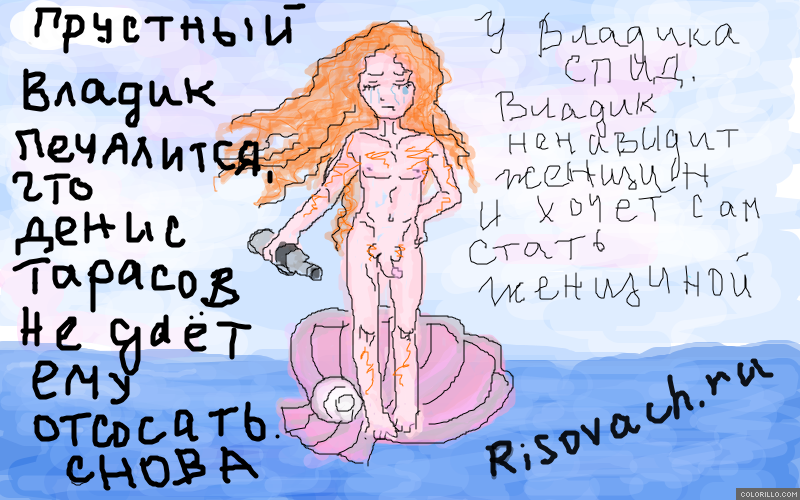 Прустный
Владик
печалится,
что
Денис
Тарасов
не даёт
ему
отсосать.
снова
У Владика
СПИД.
Владик
ненавидит
женщин
и хочет сам
стать
женщиной
Risovach.ru
COLORILLO.COM